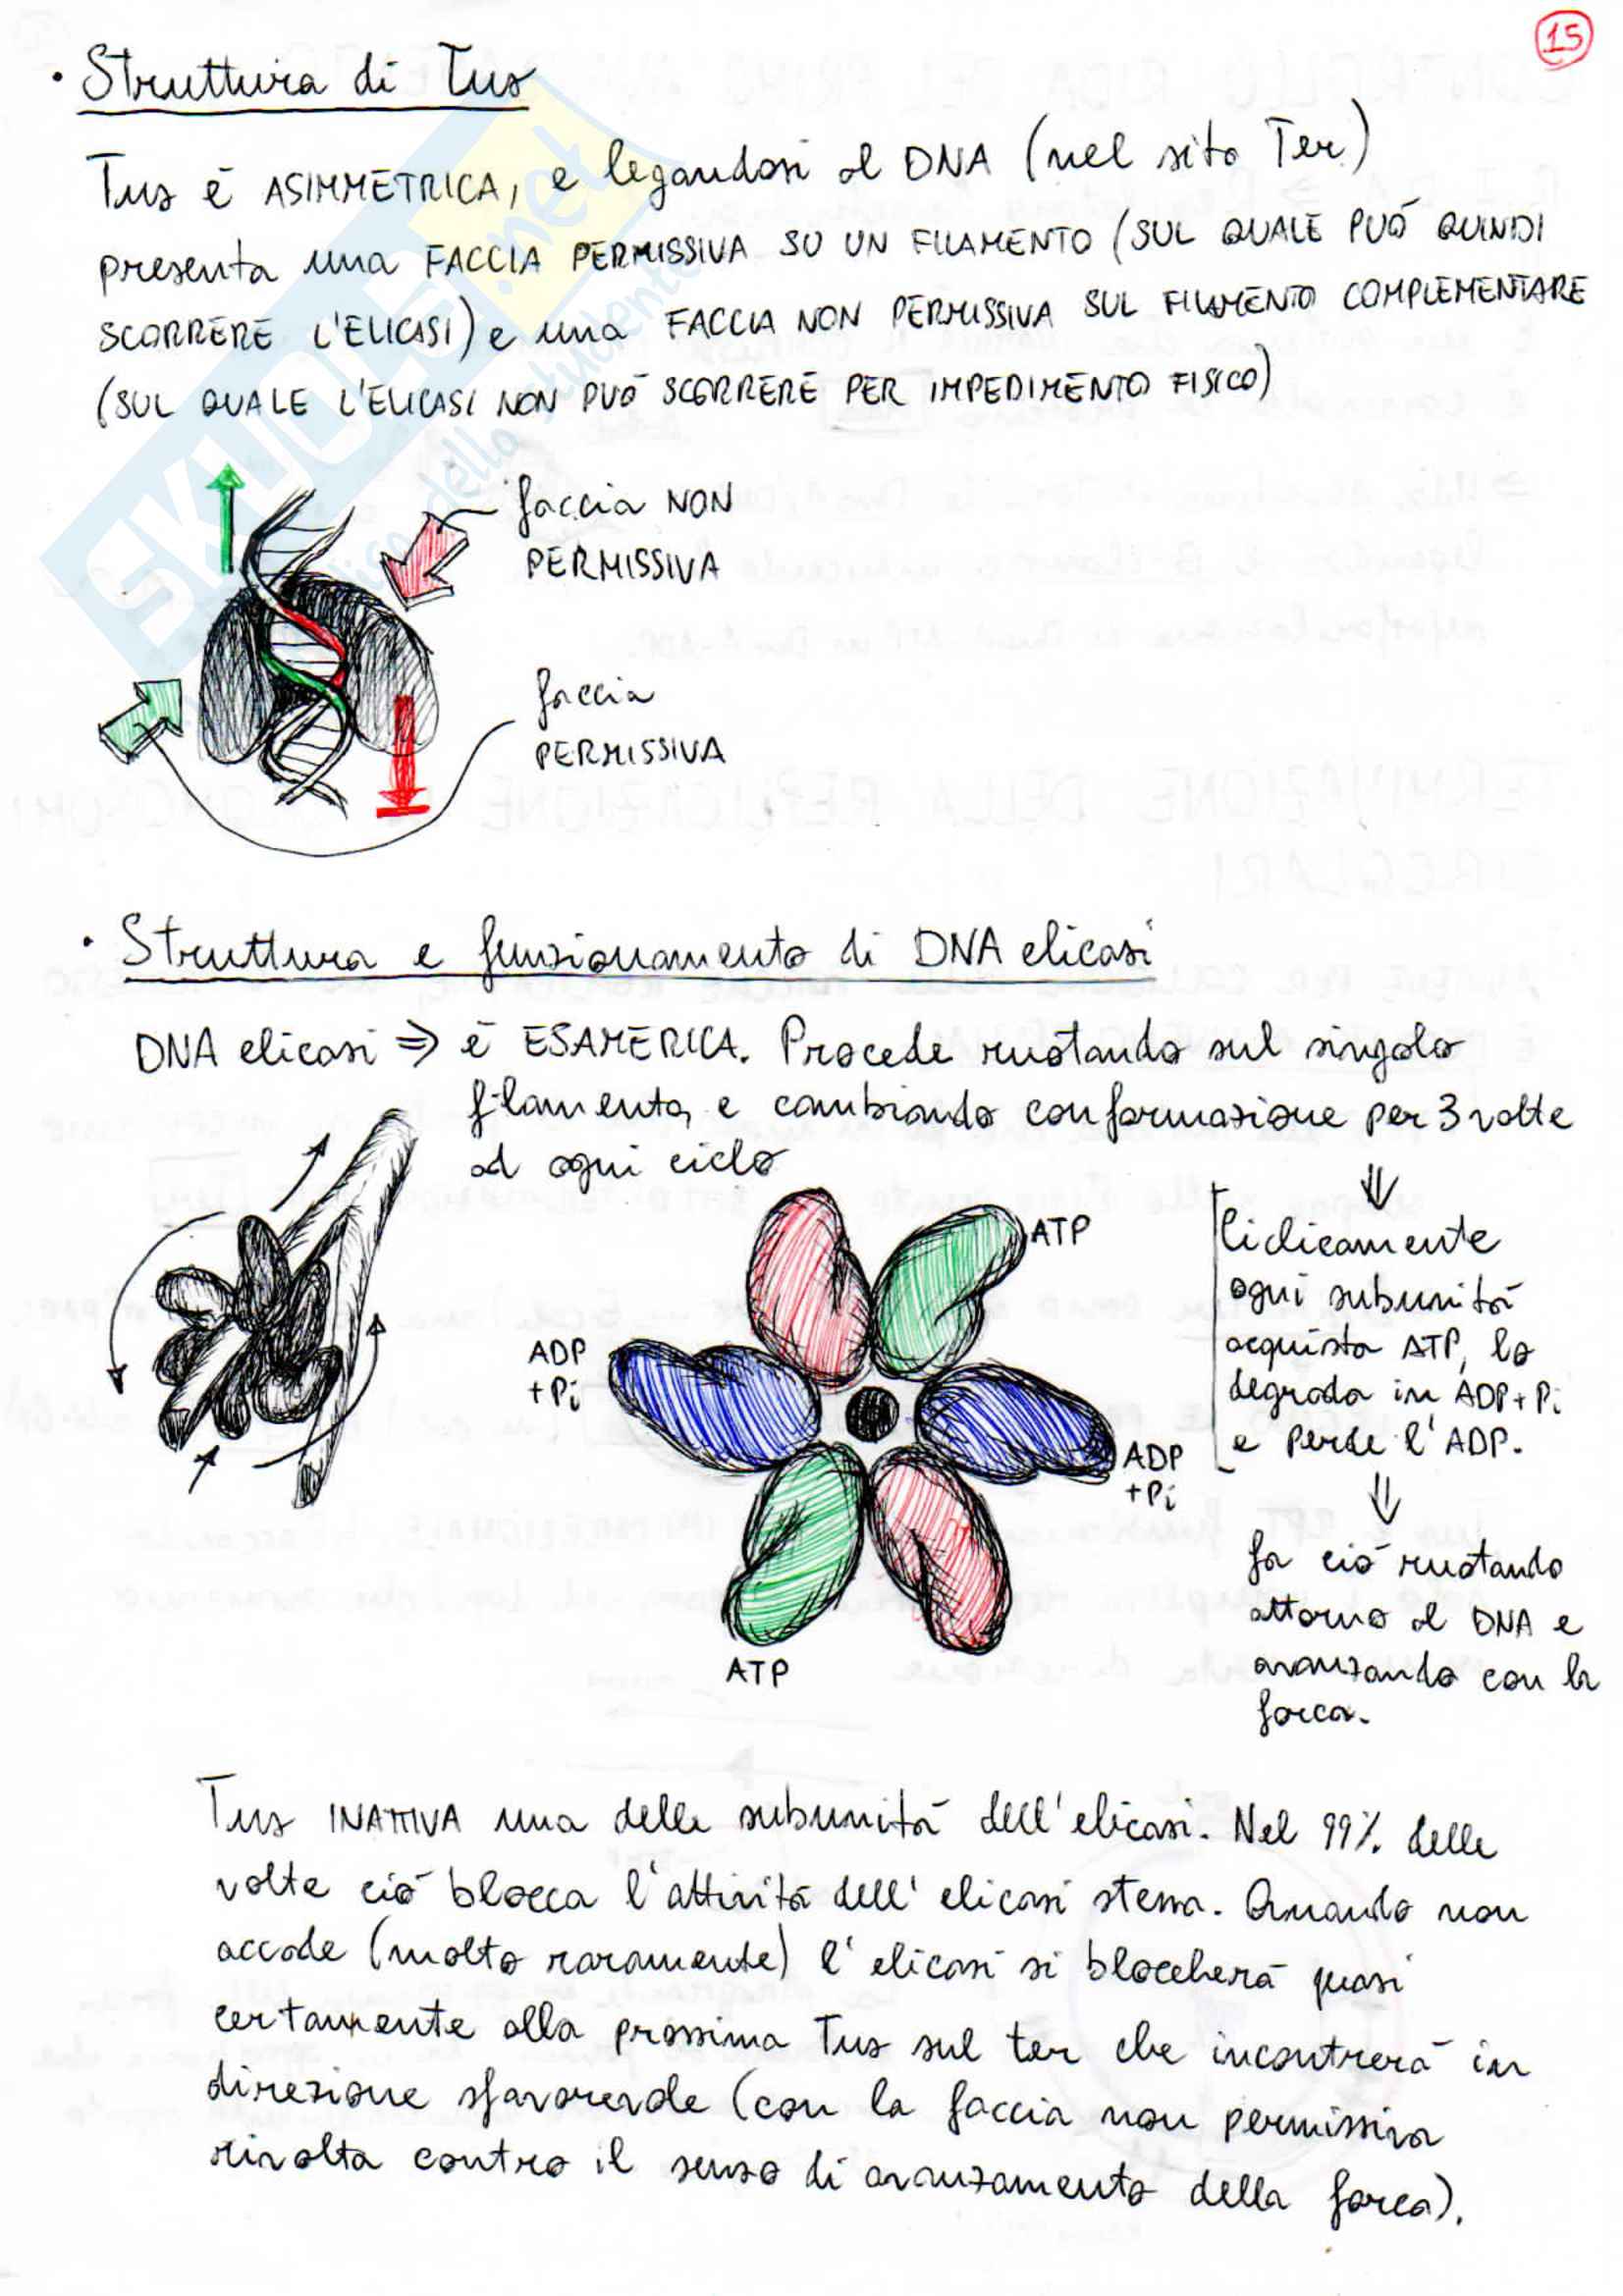 15
• Struttura di Tus
Tus è ASIMMETRICA, e legandosi al DNA (nel sito Ter)
presenta una FACCIA PERMISSIVA SU UN FILAMENTO (SUL QUALE PUÒ QUINDI
SCORRERE L'ELICASI) e una FACCIA NON PERMISSIVA SUL FILAMENTO COMPLEMENTARE
(SUL QUALE L'ELICASI NON PUÒ SCORRERE PER IMPEDIMENTO FISICO)
SKUOLA.net
della studente
faccia NON
PERMISSIVA
faccia
PERMISSIVA
• Struttura e funzionamento di DNA elicasi
DNA elicasi ⇒ è ESAMERICA. Procede ruotando sul singolo
filamento, e cambiando conformazione per 3 volte
ad ogni ciclo
⇓
Ciclicamente
ogni subunità
acquista ATP, lo
degrada in ADP+Pi
e perde l'ADP.
⇓
fa ciò ruotando
attorno al DNA e
avanzando con la
forca.
ATP
ADP
+Pi
ADP
+Pi
ATP
Tus INATTIVA una delle subunità dell'elicasi. Nel 99% delle
volte ciò blocca l'attività dell'elicasi stessa. Quando non
accade (molto raramente) l'elicasi si bloccherà quasi
certamente alla prossima Tus sul ter che incontrerà in
direzione sfavorevole (con la faccia non permissiva
rivolta contro il senso di avanzamento della forca).